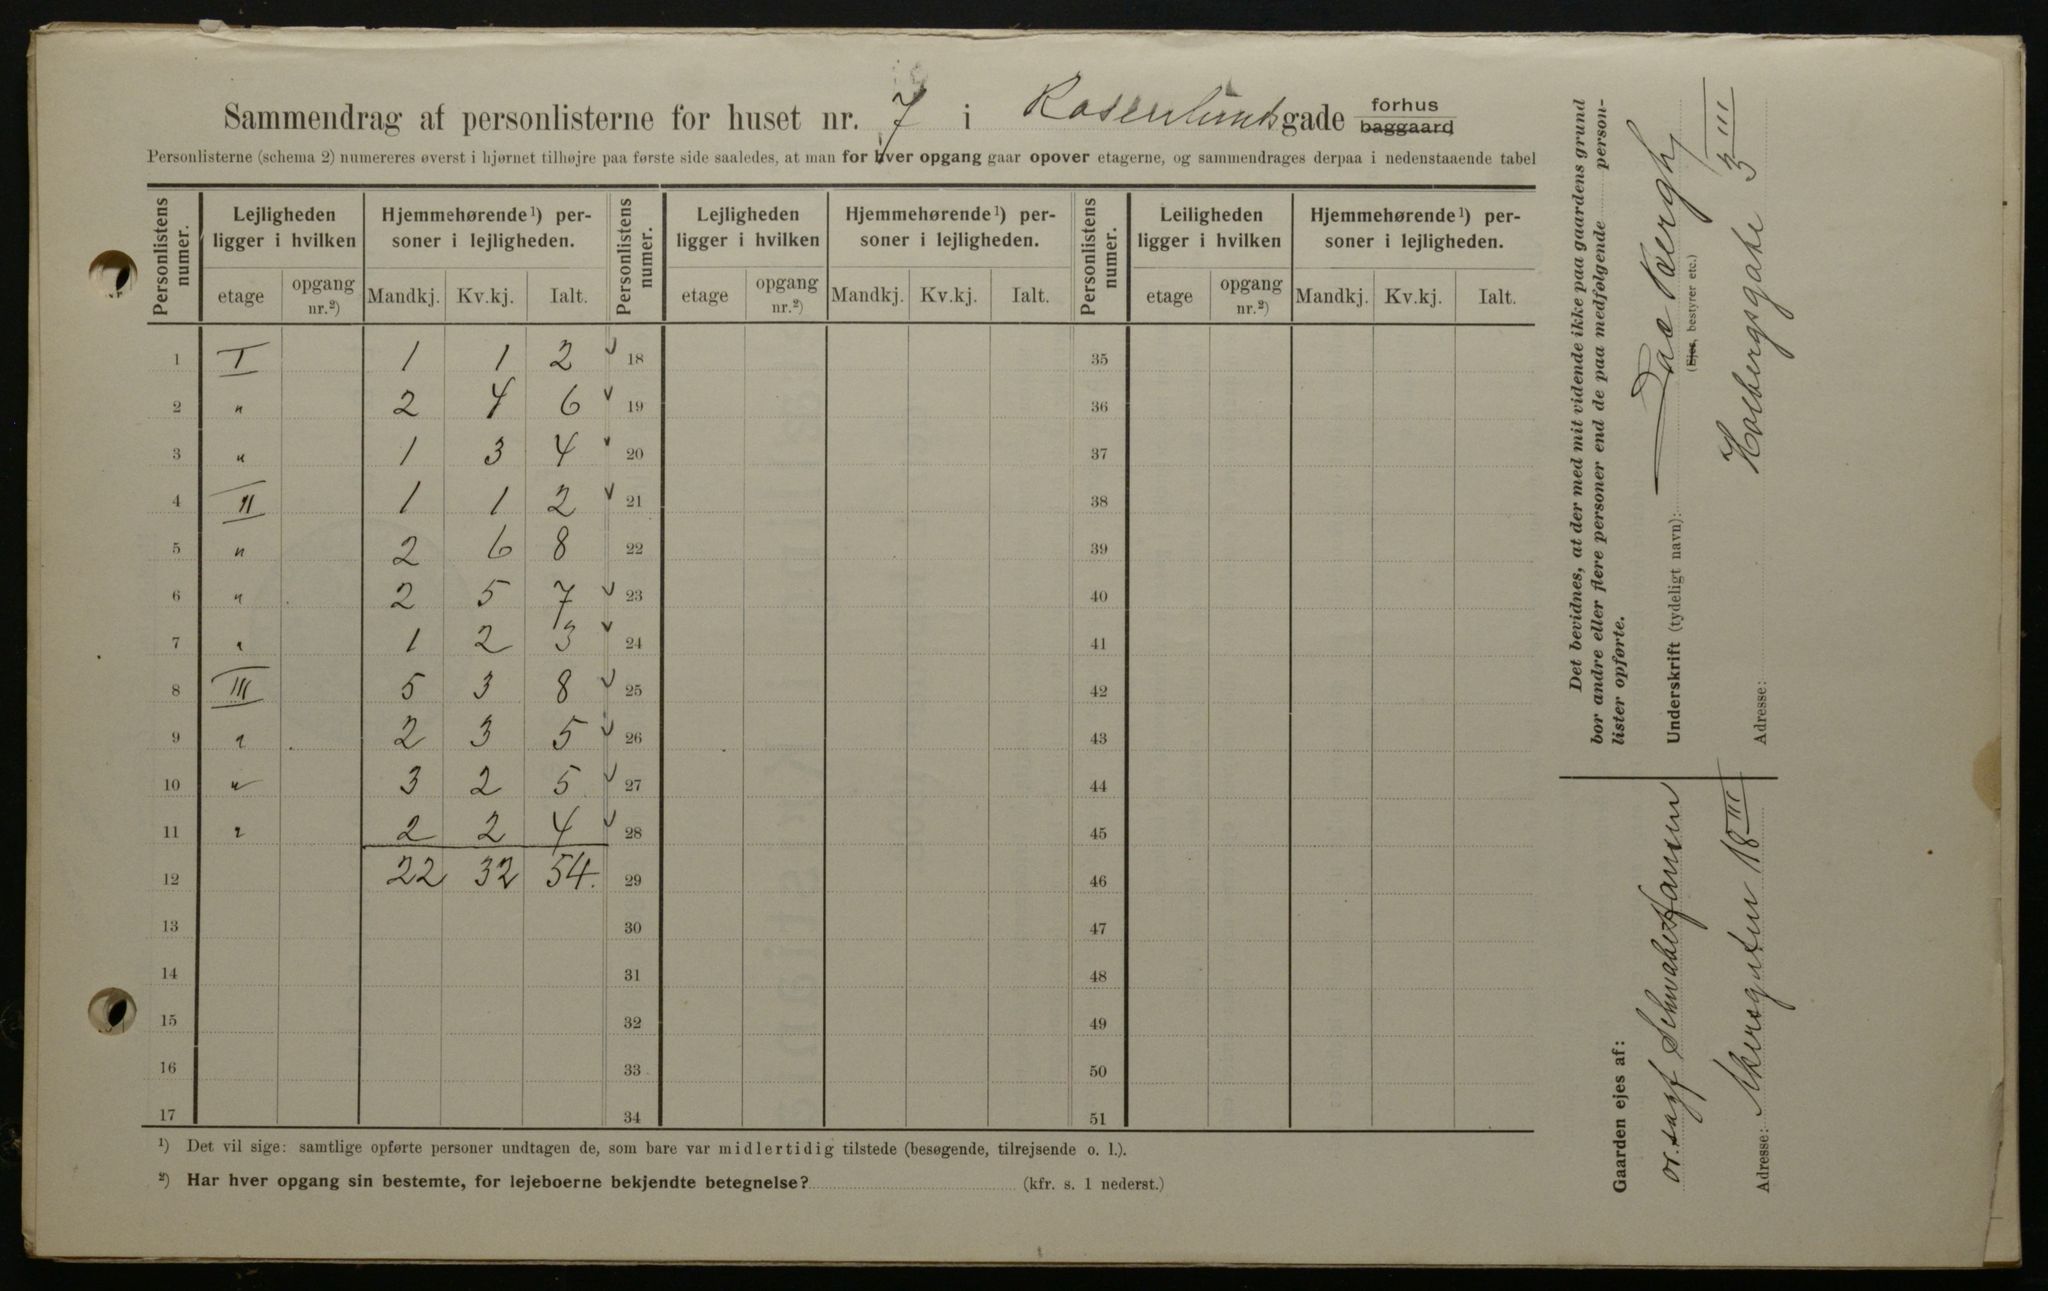 Sammendrag af personlisterne for huset nr. 7 i Rosenlundsgade forhus baggaard
Personlisterne (schema 2) numereres øverst i hjørnet tilhøjre paa første side saaledes, at man for hver opgang gaar opover etagerne, og sammendrages derpaa i nedenstaaende tabel
Personlistens numer. Lejligheden ligger i hvilken Hjemmehørende¹) personer i lejligheden. Personlistens numer. Lejligheden ligger i hvilken Hjemmehørende¹) personer i lejligheden. Personlistens numer. Leiligheden ligger i hvilken Hjemmehørende¹) personer i lejligheden.
etage opgang nr.²) Mandkj. Kv.kj. Ialt. etage opgang nr.²) Mandkj. Kv.kj. Ialt. etage opgang nr.²) Mandkj. Kv.kj. Ialt.
1 I 1 1 2 18 35
2 " 2 4 6 19 36
3 " 1 3 4 20 37
4 II 1 1 2 21 38
5 " 2 6 8 22 39
6 " 2 5 7 23 40
7 " 1 2 3 24 41
8 III 5 3 8 25 42
9 " 2 3 5 26 43
10 " 3 2 5 27 44
11 " 2 2 4 28 45
12 22 32 54. 29 46
13 30 47
14 31 48
15 32 49
16 33 50
17 34 51
¹) Det vil sige: samtlige opførte personer undtagen de, som bare var midlertidig tilstede (besøgende, tilrejsende o. l.).
²) Har hver opgang sin bestemte, for lejeboerne bekjendte betegnelse? (kfr. s. 1 nederst.)
Det bevidnes, at der med mit vidende ikke paa gaardens grund
bor andre eller flere personer end de paa medfølgende personlister opførte.
Underskrift (tydeligt navn):
(Ejer, bestyrer etc.)
Adresse: Holbergsgate 3 III
Gaarden ejes af:
or.sagf Schwabe Hansen
Adresse: Akersgaten 18 III